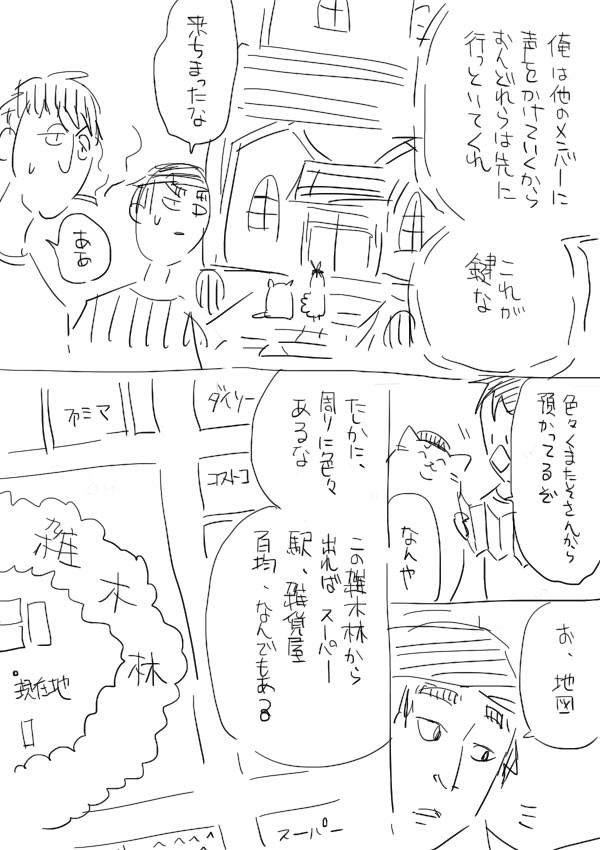 俺は他のメンバーに
声をかけていくから
おんどれらは先に
行っといてくれ
これが
鍵な
来ちまったな
ああ
色々くまたそさんから
預かってるぞ
なんや
お、地図
たしかに、
周りに色々
あるな
この雑木林から
出れば スーパー
駅、雑貨屋
百均、なんでもある
ファミマ
ダイソー
コストコ
雑木林
現在地
スーパー